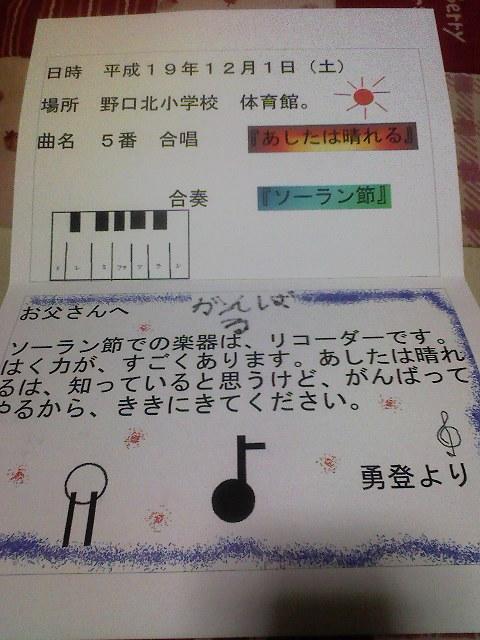 erry
日時　平成１９年１２月１日（土）
場所　野口北小学校　体育館。
曲名　５番　合唱　『あしたは晴れる』
合奏　『ソーラン節』
お父さんへ
がんばる
ソーラン節での楽器は、リコーダーです。
はく力が、すごくあります。あしたは晴れ
るは、知っていると思うけど、がんばって
やるから、ききにきてください。
勇登より